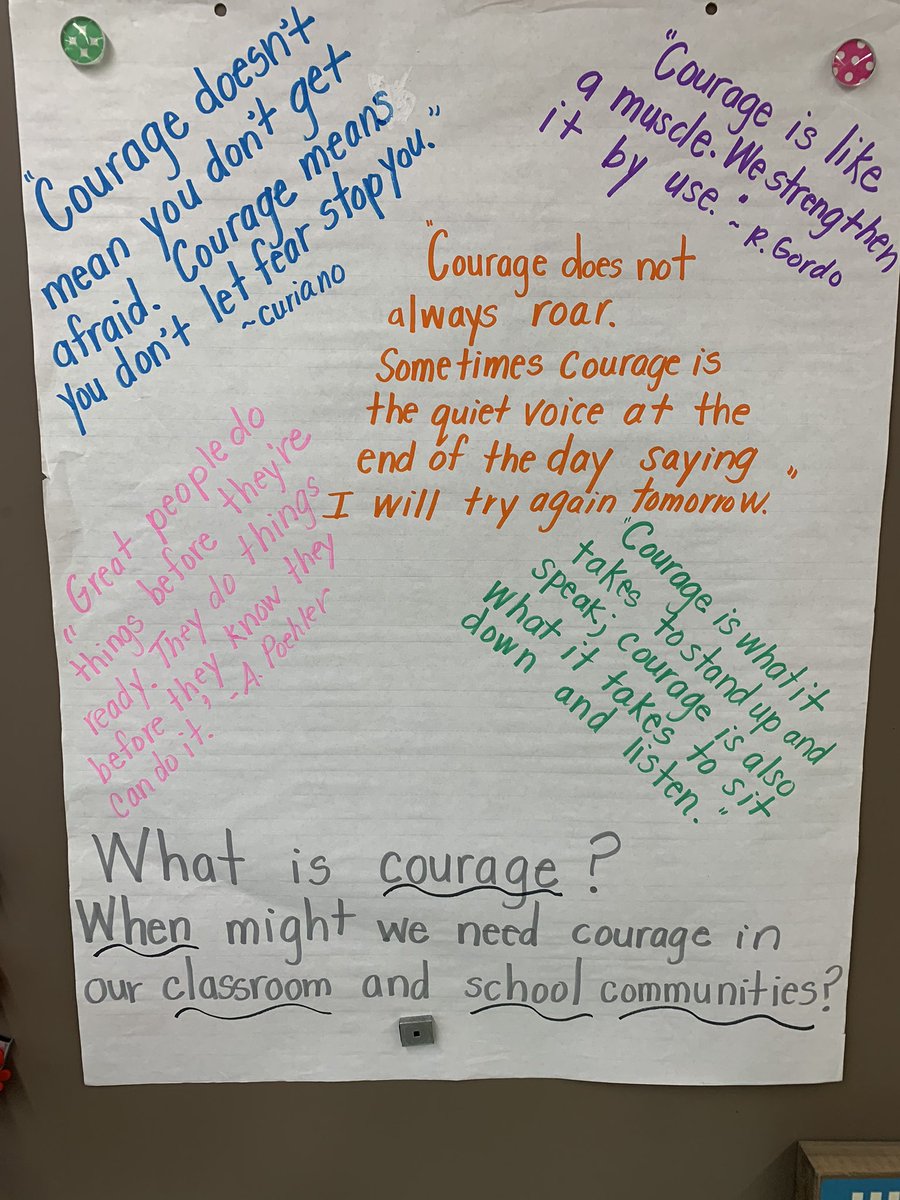 "Courage doesn't
mean you don't get
afraid. Courage means
you don't let fear stop you."
~Curiano
"Courage is like
a muscle. We strengthen
it by use."
~ R. Gordo
"Courage does not
always roar.
Sometimes courage is
the quiet voice at the
end of the day saying
I will try again tomorrow."
"Great people do
things before they're
ready. They do things
before they know they
can do it." - A. Poehler
"Courage is what it
takes to stand up and
speak; courage is also
what it takes to sit
down and listen."
What is courage?
When might we need courage in
our classroom and school communities?